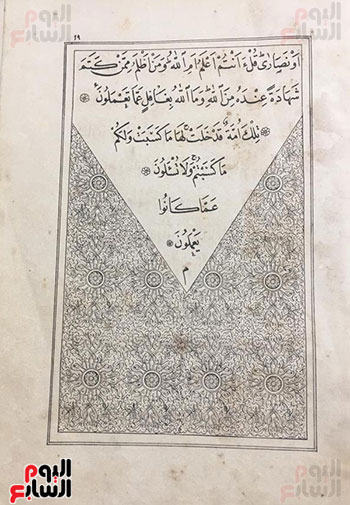 اليوم السابع
٤٩
اَوْ نَصَارٰى قُلْ ءَاَنْتُمْ اَعْلَمُ اَمِ اللهُ وَمَنْ اَظْلَمُ مِمَّنْ كَتَمَ
شَهَادَةً عِنْدَهُ مِنَ اللهِ وَمَا اللهُ بِغَافِلٍ عَمَّا تَعْمَلُونَ
تِلْكَ اُمَّةٌ قَدْ خَلَتْ لَهَا مَا كَسَبَتْ وَلَكُمْ
مَا كَسَبْتُمْ وَلَا تُسْئَلُونَ
عَمَّا كَانُوا
يَعْمَلُونَ
م
اليوم السابع
اليوم السابع